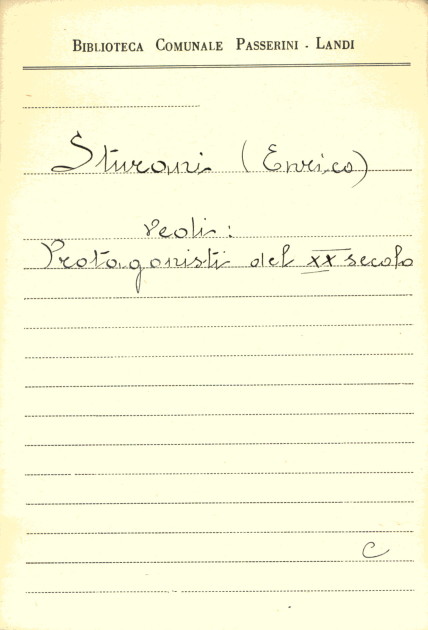 BIBLIOTECA COMUNALE PASSERINI - LANDI
Sturani (Enrico)
vedi:
Protagonisti del XX secolo
C